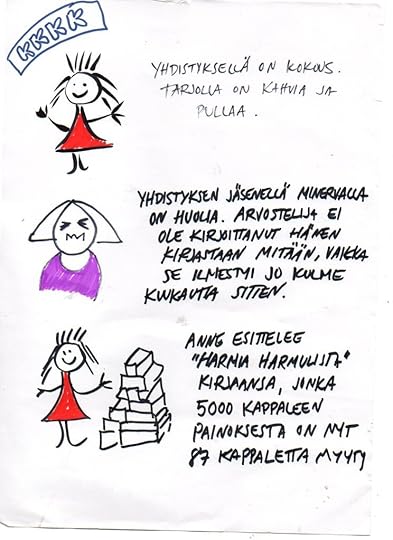 KKKK
YHDISTYKSELLÄ ON KOKOUS.
TARJOLLA ON KAHVIA JA
PULLAA.
YHDISTYKSEN JÄSENELLÄ MINERVALLA
ON HUOLIA. ARVOSTELIJA EI
OLE KIRJOITTANUT HÄNEN
KIRJASTAAN MITÄÄN, VAIKKA
SE ILMESTYI JO KOLME
KUUKAUTTA SITTEN.
ANNE ESITTELEE
"HARMIA HARMULISTA"
KIRJAANSA, JONKA
5000 KAPPALEEN
PAINOKSESTA ON NYT
87 KAPPALETTA MYYTY